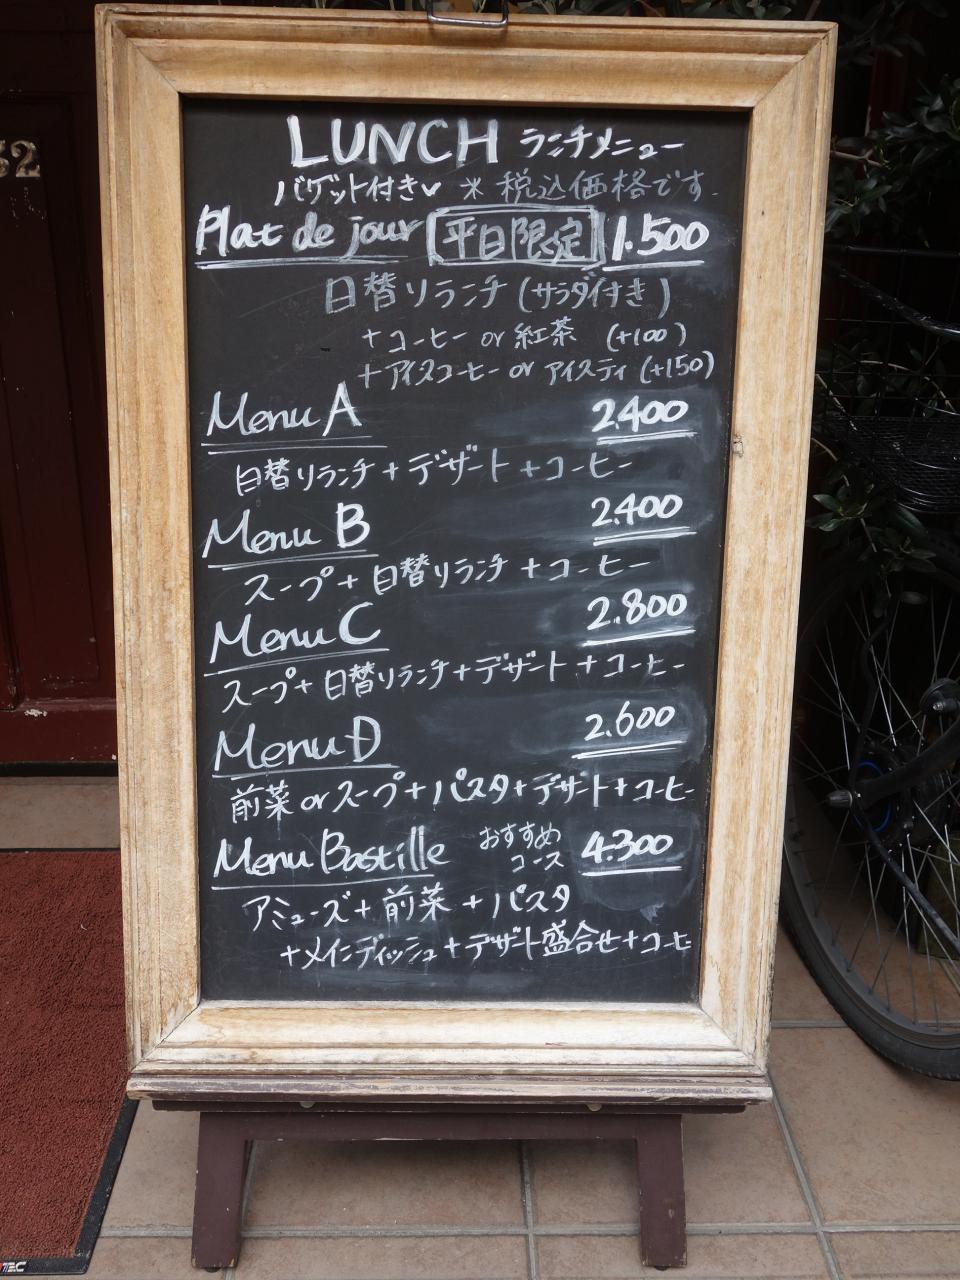 52
LUNCH ランチメニュー
バゲット付き ※税込価格です.
Plat de jour 平日限定 1.500
日替リランチ(サラダ付き)
+コーヒー or 紅茶 (+100)
+アイスコーヒー or アイスティ (+150)
Menu A 2.400
日替リランチ+デザート+コーヒー
Menu B 2.400
スープ+日替リランチ+コーヒー
Menu C 2.800
スープ+日替リランチ+デザート+コーヒー
Menu D 2.600
前菜 or スープ+パスタ+デザート+コーヒー
Menu Bastille おすすめコース 4.300
アミューズ+前菜+パスタ
+メインディッシュ+デザート盛合せ+コーヒ